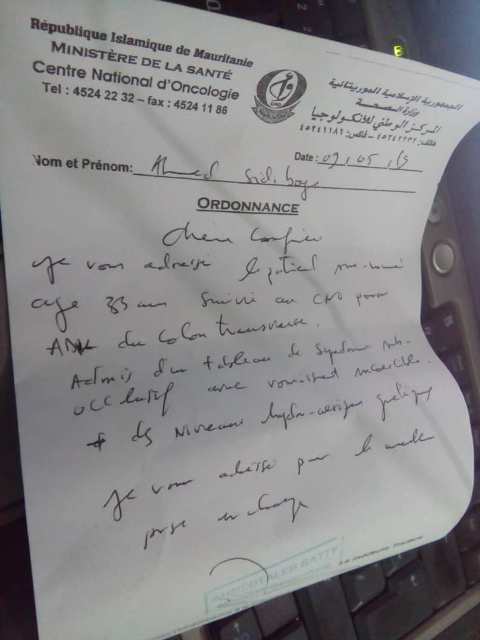 République Islamique de Mauritanie
MINISTÈRE DE LA SANTÉ
Centre National d'Oncologie
Tel : 4524 22 32 – fax : 4524 11 86
الجمهورية الإسلامية الموريتانية
وزارة الصحة
المركز الوطني للأنكولوجيا
هاتف: ٤٥٢٤٢٢٣٢ - فاكس: ٤٥٢٤١١٨٦
Nom et Prénom: Ahmed Sidi
Date: 05
ORDONNANCE
chère
Je vous adresse le patient sus-nommé
age 33 ans suivi au CNO pour
du colon transverse.
Admis d'un tableau de syndrome sub-
occlusif avec
+ des niveaux hydro-aériques
Je vous adresse pour
prise en charge